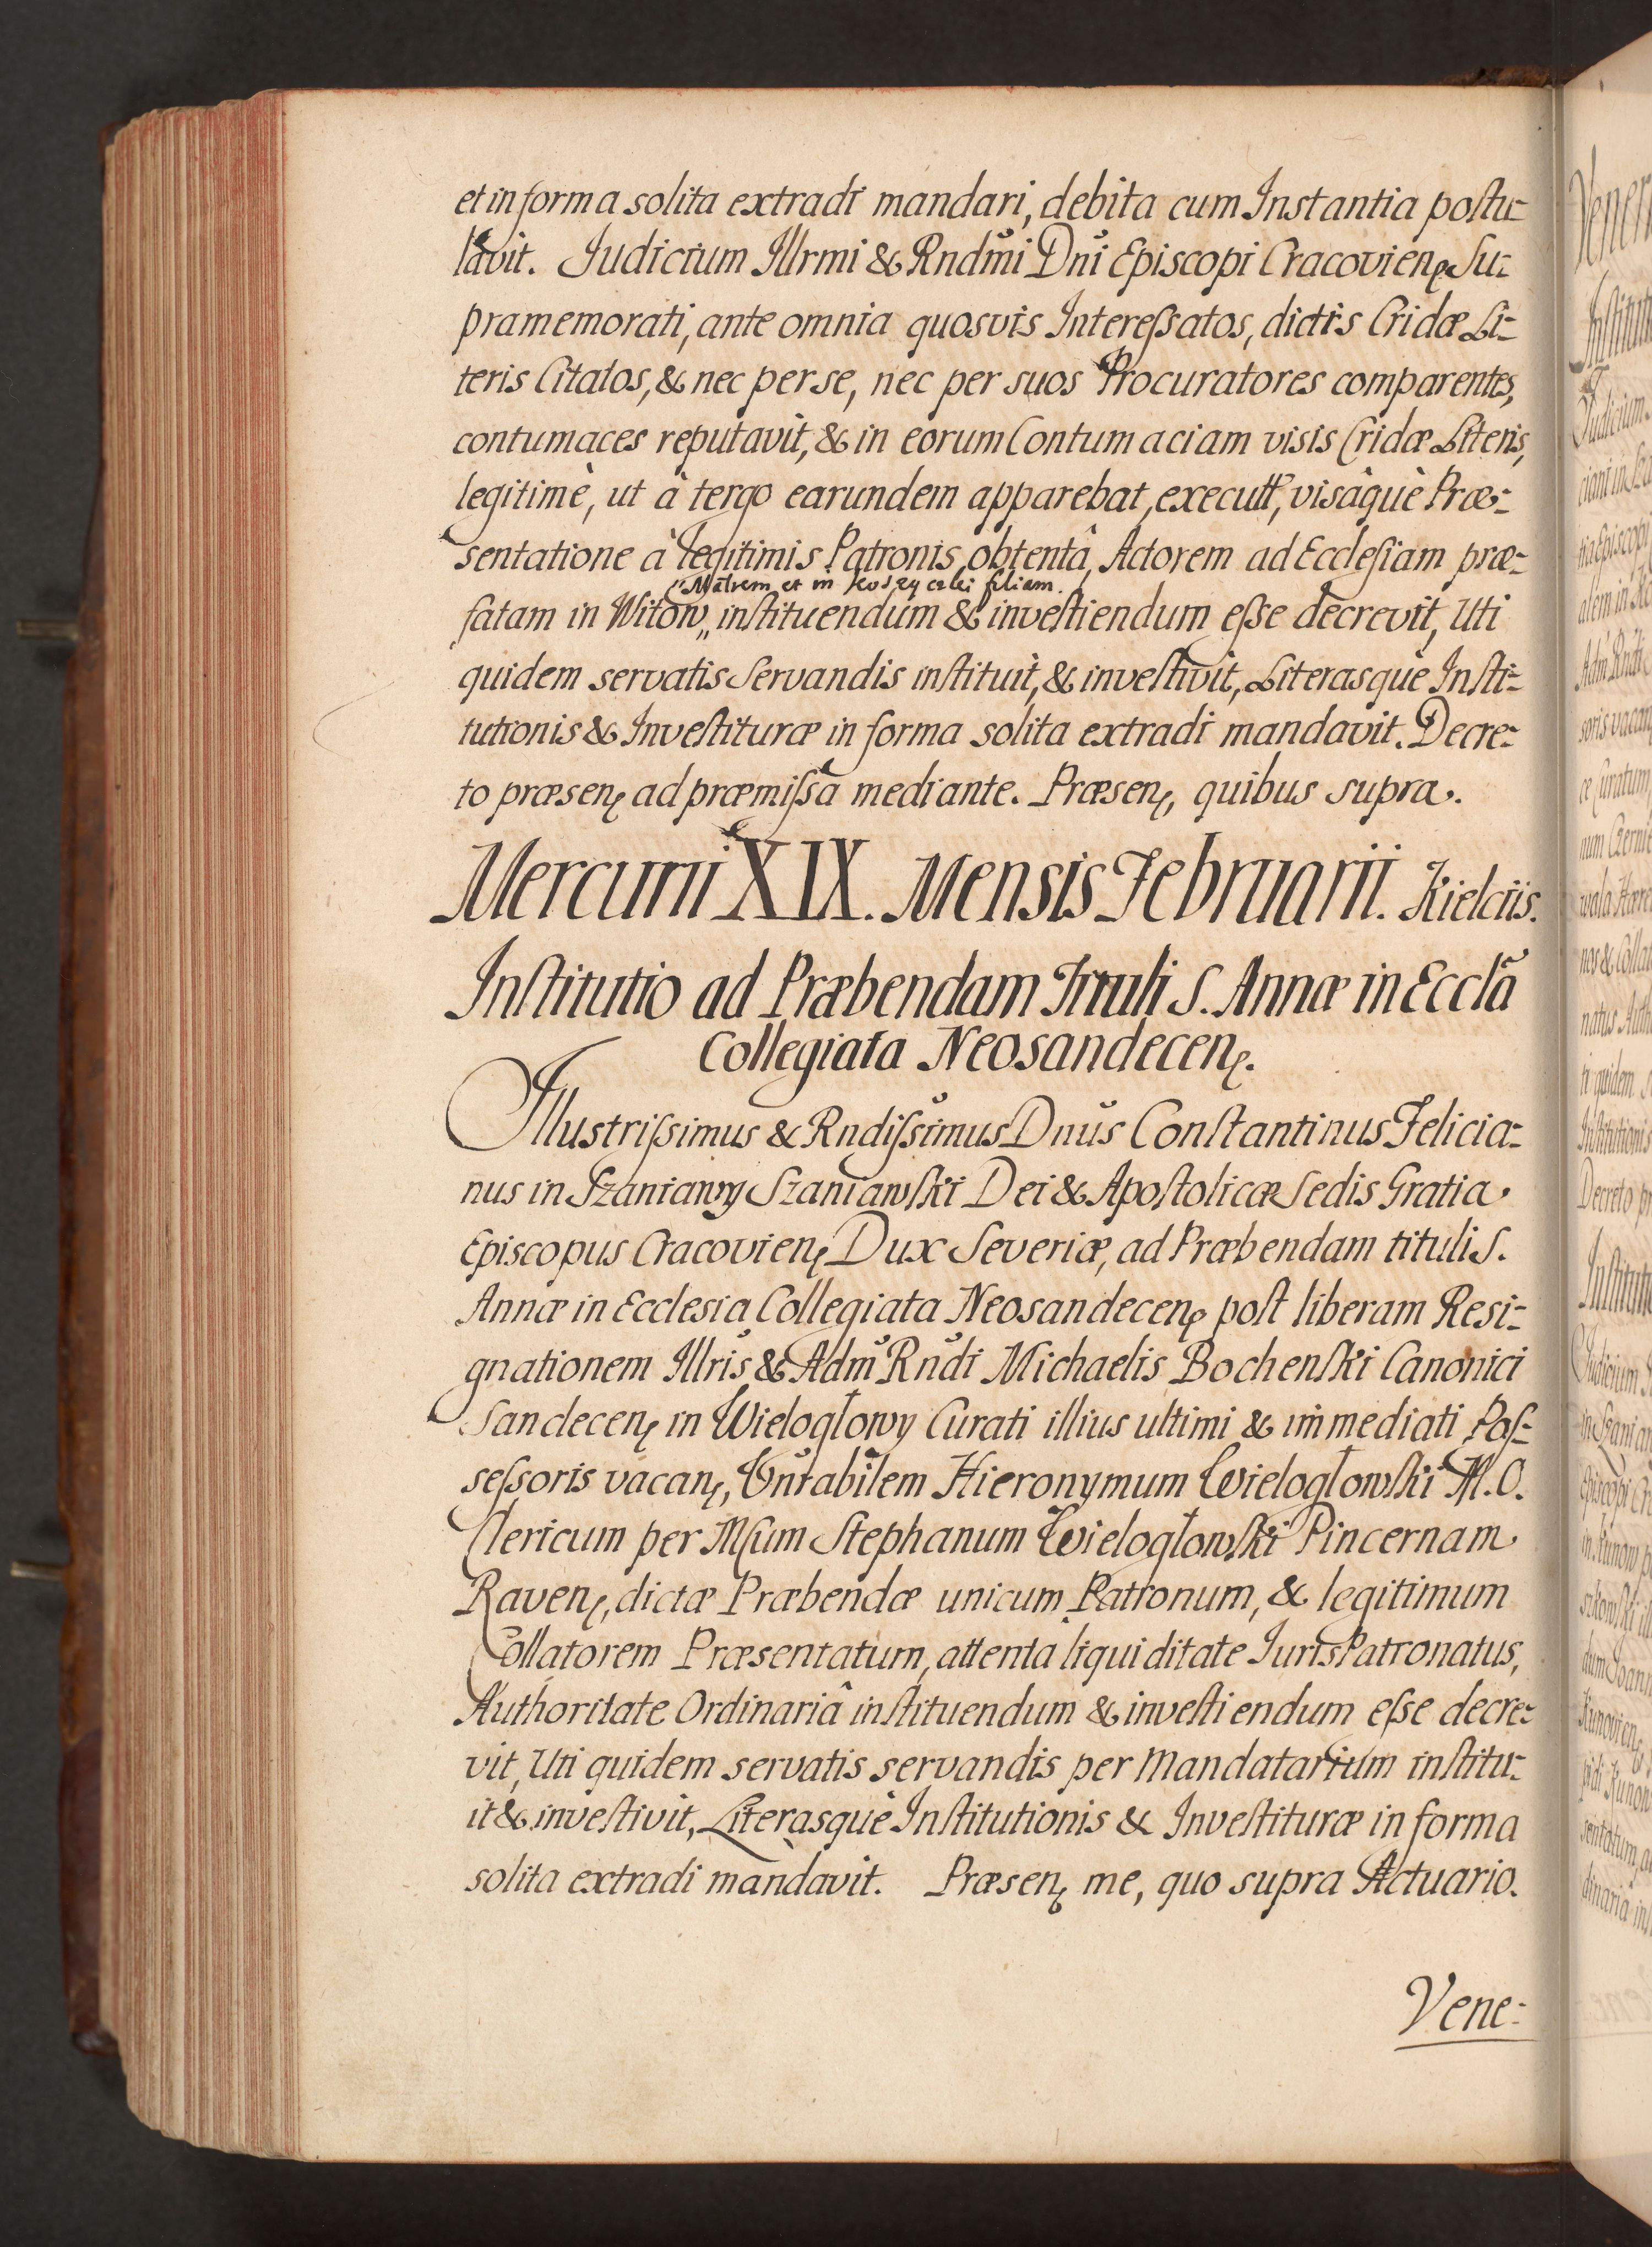 et in forma solita extradi mandari, debita cum Instantia postu-
lavit. Judicium Illrmi & Rndmi Dni Episcopi Cracovien. Su-
pramemorati, ante omnia quosvis Interessatos, dictis Cridæ Li-
teris Citatos, & nec per se, nec per suos Procuratores comparentes,
contumaces reputavit, & in eorum Contumaciam visis Cridæ Literis,
legitimè, ut à tergo earundem apparebat, executt, visâquè Præ-
sentatione à legitimis Patronis obtentâ, Actorem ad Ecclesiam præ-
Matrem et in filiam.
fatam in Witow,, instituendum & investiendum esse decrevit, Uti
quidem servatis Servandis instituit, & investivit, Literasquè Insti-
tutionis & Investituræ in forma solita extradi mandavit. Decre-
to præsen. ad præmissa mediante. Præsen. quibus supra.
Mercurii XIX. Mensis Februarii. Kielciis.
Institutio ad Præbendam Tituli S. Annæ in Eccla
Collegiata Neosandecen.
Illustrissimus & Rndissimus Dnus Constantinus Felicia-
nus in Szaniawy Szaniawski Dei & Apostolicæ Sedis Gratia
Episcopus Cracovien. Dux Severiæ, ad Præbendam tituli S.
Annæ in Ecclesia Collegiata Neosandecen. post liberam Resi-
gnationem Illris & Adm Rndi Michaelis Bochenski Canonici
Sandecen. in Wielogłowy Curati illius ultimi & immediati Pos-
sessoris vacan. Vnrabilem Hieronymum Wielogłowski M.O.
Clericum per Msum Stephanum Wielogłowski Pincernam
Raven. dictæ Præbendæ unicum Patronum, & legitimum
Collatorem Præsentatum, attenta liquiditate Juris Patronatus,
Authoritate Ordinariâ instituendum & investiendum esse decre-
vit, Uti quidem servatis servandis per Mandatarium institu-
it & investivit, Literasquè Institutionis & Investituræ in forma
solita extradi mandavit. Præsen. me, quo supra Actuario.
Vene-